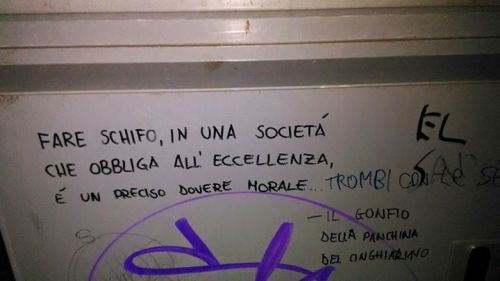 FARE SCHIFO, IN UNA SOCIETÁ
CHE OBBLIGA ALL' ECCELLENZA,
É UN PRECISO DOVERE MORALE... TROMBI CON
— IL GONFIO
DELLA PANCHINA
DEL CINGHIARINO
EL